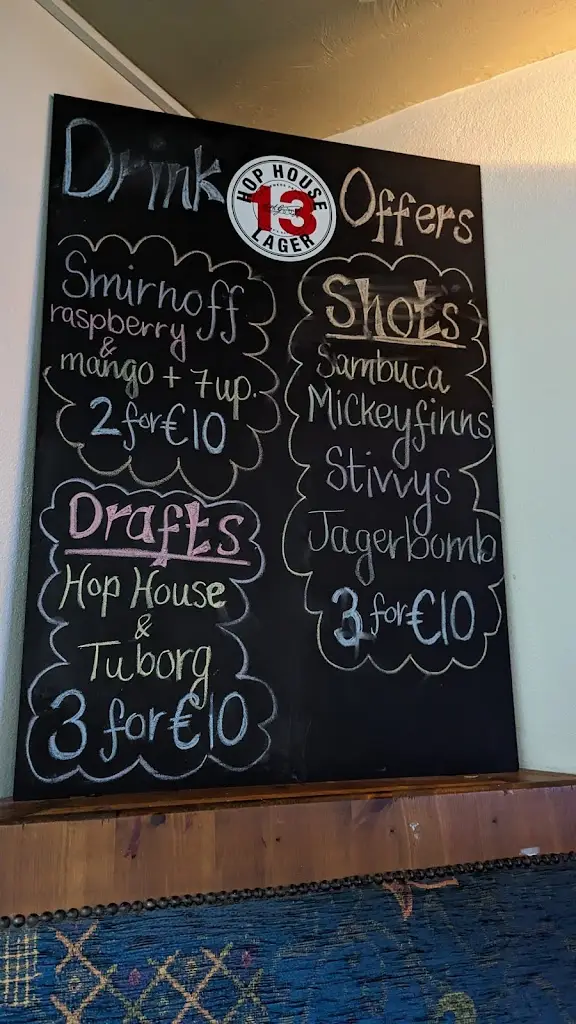 Drink Offers
HOP HOUSE
13
LAGER
Smirnoff
raspberry
&
mango + 7up.
2 for €10
Drafts
Hop House
&
Tuborg
3 for €10
Shots
Sambuca
Mickeyfinns
Stivvys
Jagerbomb
3 for €10